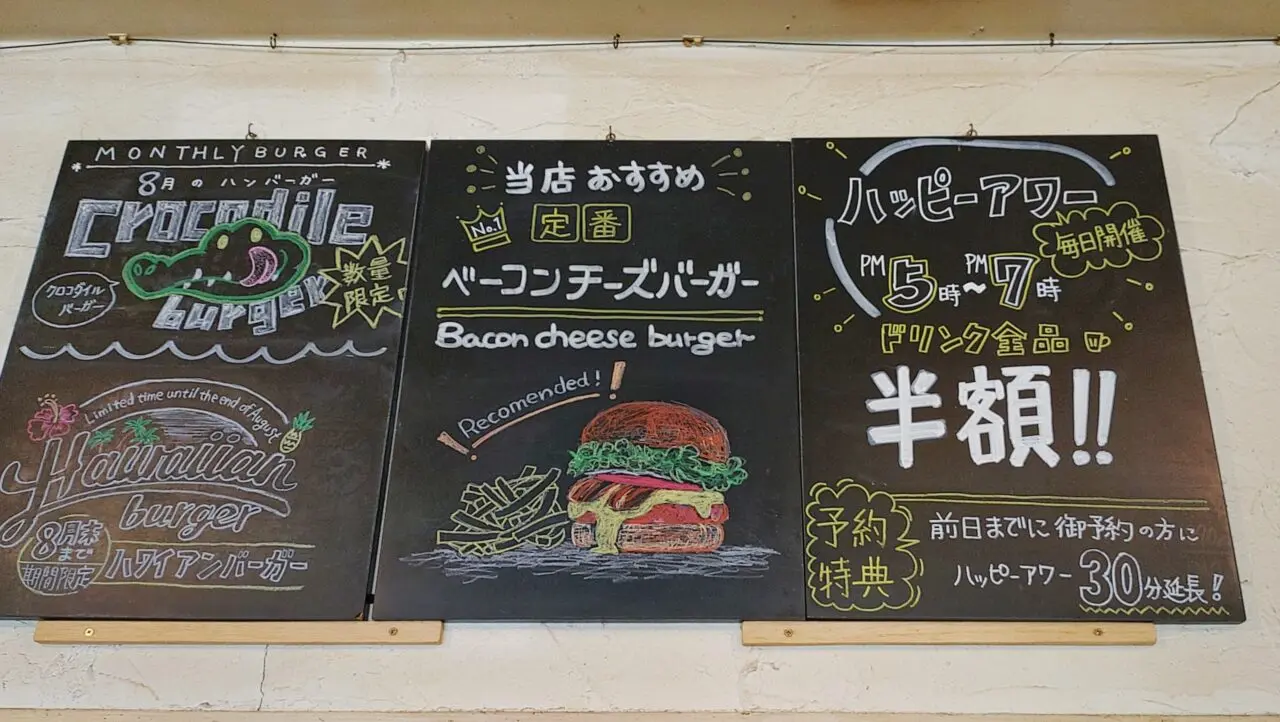 MONTHLY BURGER
8月のハンバーガー
Crocodile
burger
クロコダイル
バーガー
数量
限定
Limited time until the end of August
Hawaiian
burger
8月末
まで
期間限定
ハワイアンバーガー
当店おすすめ
No.1
定番
ベーコンチーズバーガー
Bacon cheese burger
Recomended!
ハッピーアワー
毎日開催
PM5時~PM7時
ドリンク全品
半額!!
予約
特典
前日までに御予約の方に
ハッピーアワー30分延長!